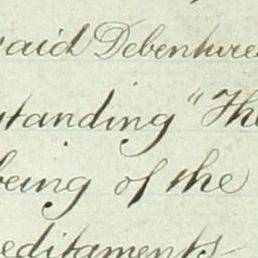 said Debentures
standing "The
being of the
editaments